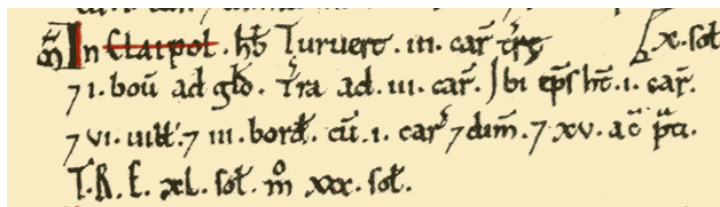 M̃ In Claipol . hb̄ Turuert . iii . car̄ tr̄e
⁊ i . bou̅ ad gld̄ . T̄ra ad . iii . car̄ . Ibi ep̄s ht̄ . i . car̄ . x . sol
⁊ vi . uill̄ . ⁊ iii . bord̄ . cū . i . car̄ ⁊ dim̄ . ⁊ xv . ac̄ p̄ti .
T . R . E . xl . sol̄ . m̊ xxx . sol̄ .